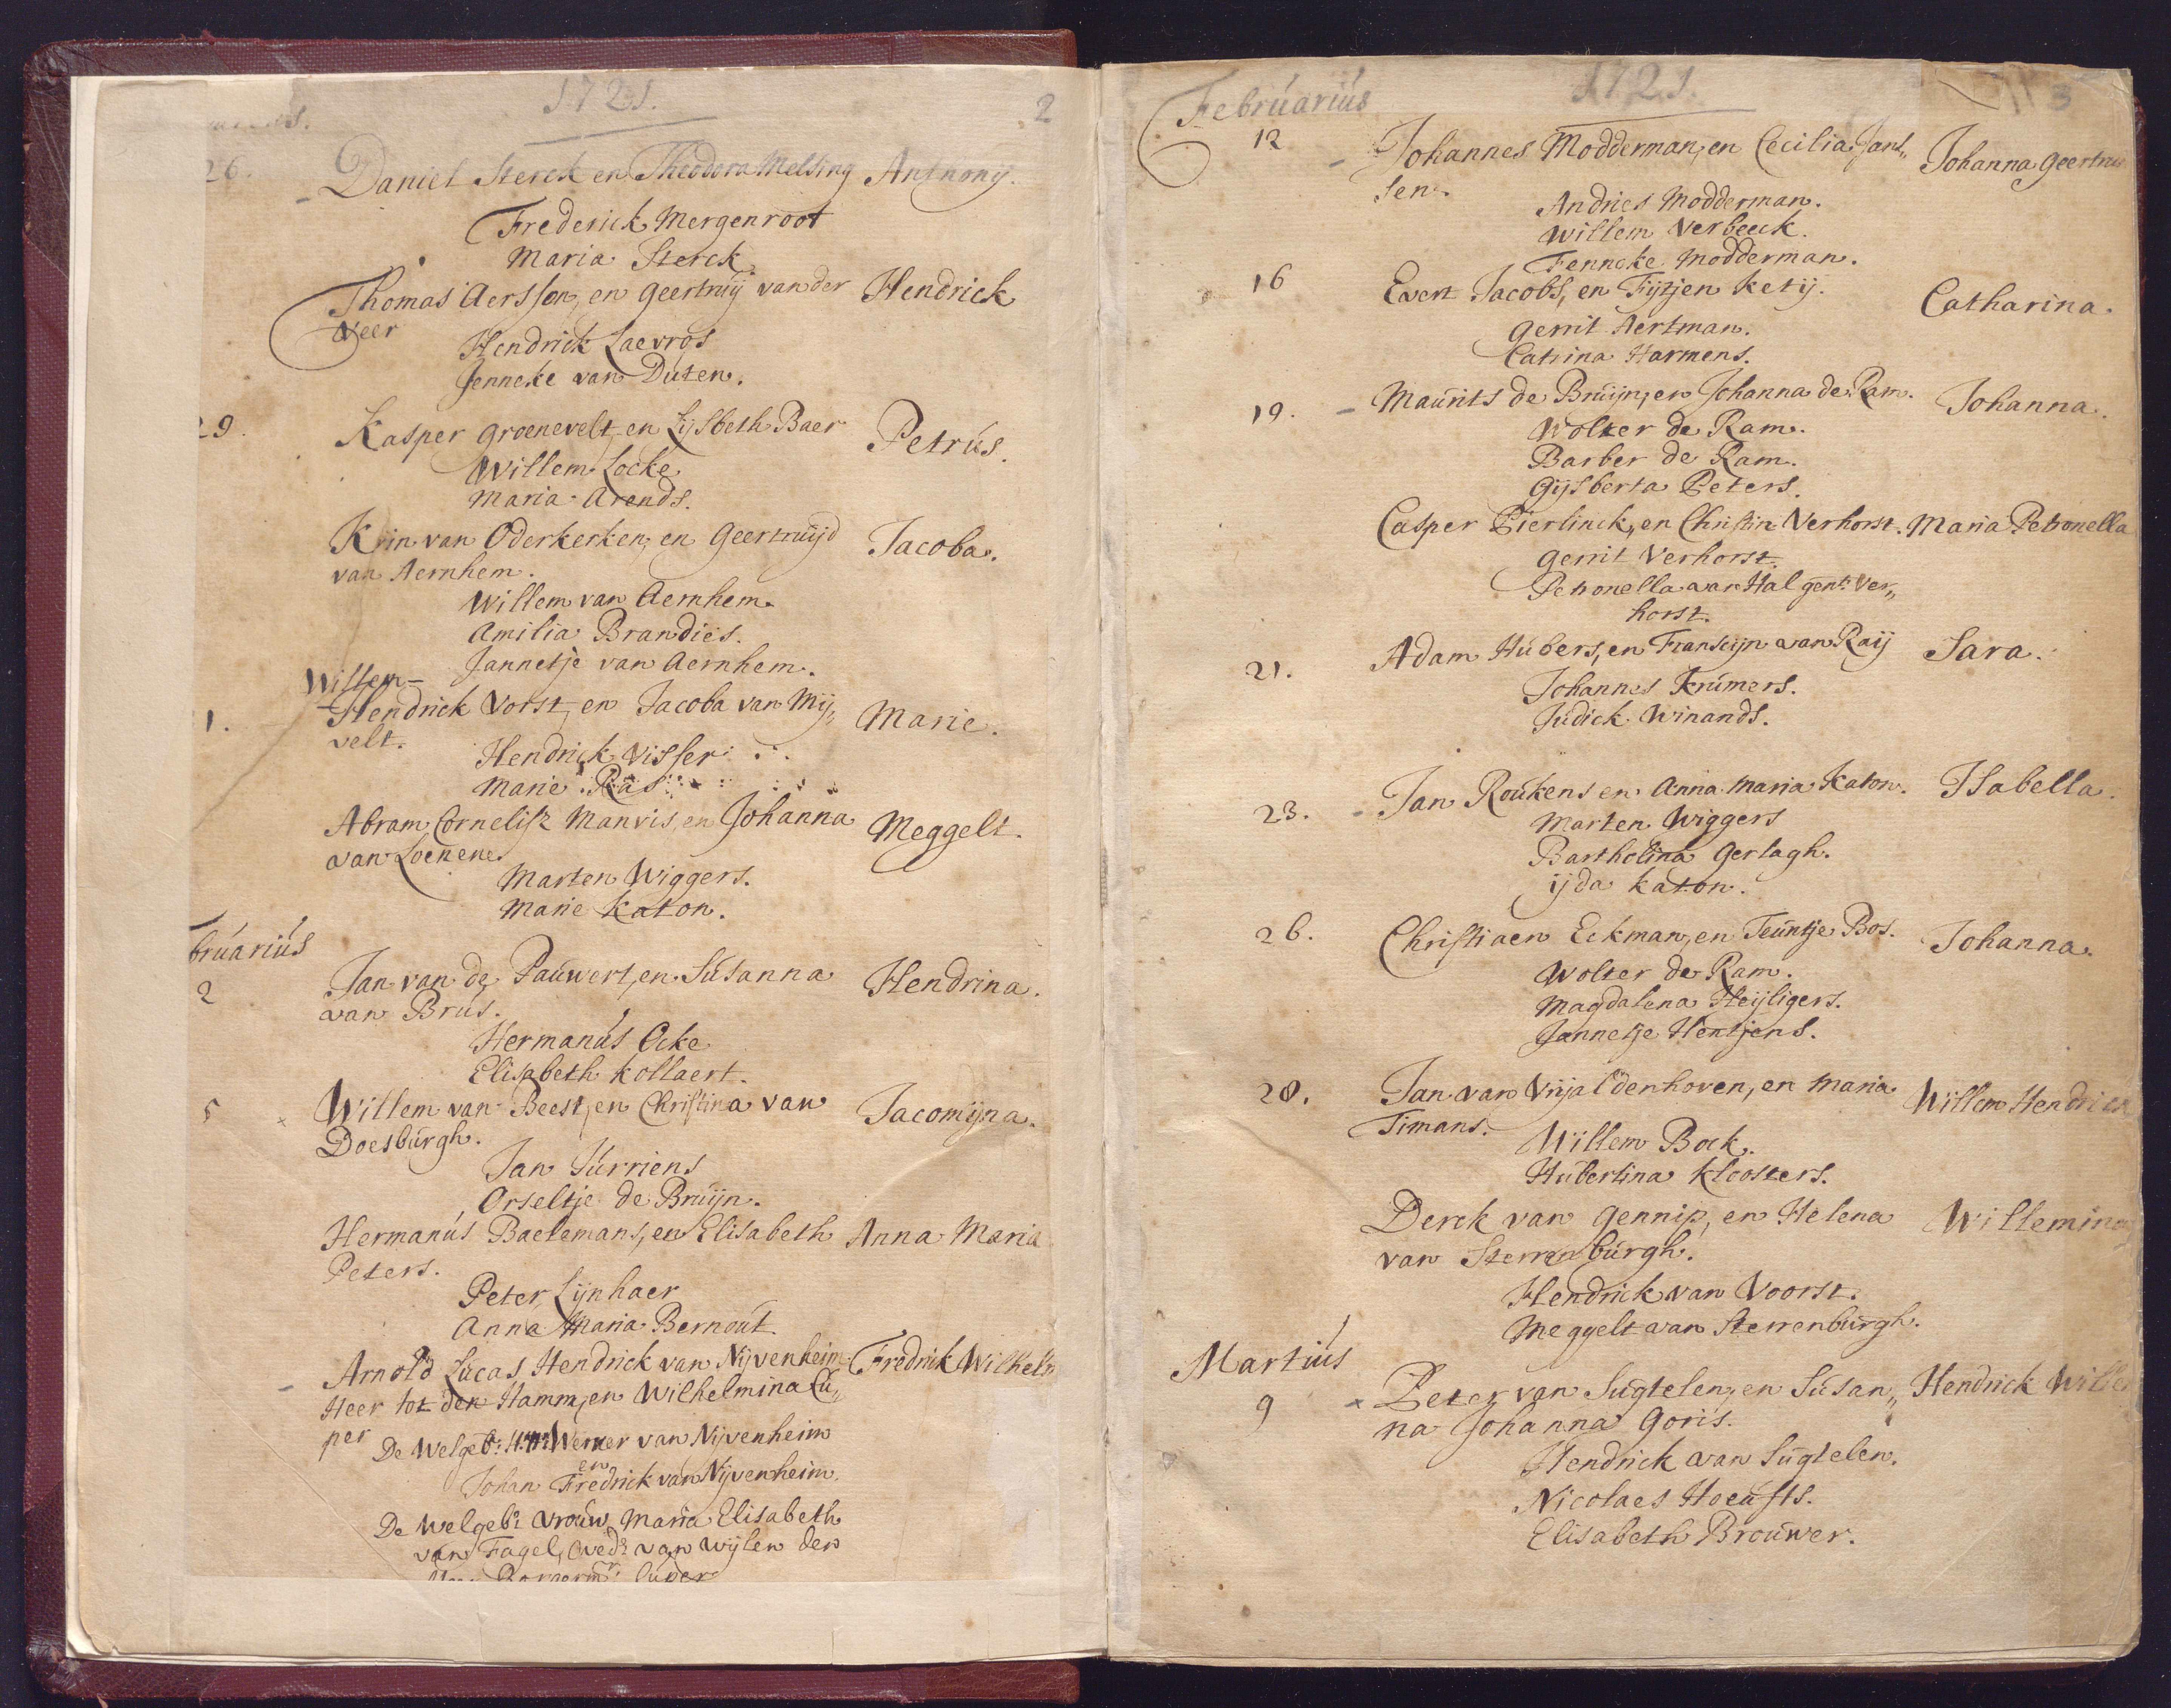 1721.
2
26.
Daniel Sterck en Theodora Melsing Anthony.
Frederick Mergenroot
Maria Sterck
Thomas Aerssen, en Geertruij van der Hendrick
Veer
Hendrick Laevros
Jenneke van Duten.
29.
Kasper Groenevelt, en Lijsbeth Baer Petrus.
Willem Locke
Maria Arends.
Krin van Oderkerken, en Geertruijd Jacoba.
van Aernhem.
Willem van Aernhem.
Amilia Brandies.
Jannetje van Aernhem.
Willem
1.
Hendrick Vorst, en Jacoba van Mij„ Marie.
velt.
Hendrick Visser
Marie Ras
Abram Cornelisz Manvis, en Johanna Meggelt.
van Loenen
Marten Wiggers.
Marie Katon.
bruarius
2
Jan van de Pauwert, en Susanna Hendrina.
van Brus.
Hermanus Ocke
Elisabeth Kollaert.
5 x Willem van Beest, en Christina van Jacomijna.
Doesburgh.
Jan Jurriens
Orseltje de Bruijn.
Hermanus Baelemans, en Elisabeth Anna Maria
Peters.
Peter Lijnhaer
Anna Maria Bernout.
- Arnold Lucas Hendrick van Nijvenheim Fredrik Wilhelm
Heer tot den Hamm, en Wilhelmina Cu„
per
De Welgeb: Werner van Nijvenheim
en
Johan Fredrick van Nijvenheim.
De Welgeb: Vrouw Maria Elisabeth
van Fagel, Wed: van wijlen den
Borgerm: Cuper
Februarius 1721. 3
12 - Johannes Modderman, en Cecilia Jans„ Johanna Geertru
sen.
Andries Modderman.
Willem Verbeeck.
Fenneke Modderman.
16 Evert Jacobs, en Fijtjen Ketij. Catharina.
Gerrit Aertman.
Catrina Harmens.
19. - Maurits de Bruijn, en Johanna de Ram. Johanna.
Wolter de Ram.
Barber de Ram.
Gijsberta Peters.
Casper Pierlinck, en Christin Verhorst. Maria Petronella
Gerrit Verhorst.
Petronella van Hal gent: Ver„
horst.
21. Adam Hubers, en Franscijn van Raij Sara.
Johannes Krumers.
Judick Winands.
23. - Jan Roukens en Anna Maria Katon. Isabella.
Marten Wiggers
Bartholina Gerlagh.
ijda Katon.
26. Christiaen Eckman, en Teuntje Bos. Johanna.
Wolter de Ram.
Magdalena Heijligers.
Jannetje Hentjens.
28. Jan van Vrijaldenhoven, en Maria Willem Hendrick
Timans.
Willem Bock.
Hubertina Kloosters.
Derck van Gennip, en Helena Willemina
van Sterrenburgh.
Hendrick van Voorst.
Meggelt van Sterrenburgh.
Martius
9 x Peter van Sugtelen, en Susan„ Hendrick Wille
na Johanna Goris.
Hendrick van Sugtelen.
Nicolaes Hoeufts.
Elisabeth Brouwer.